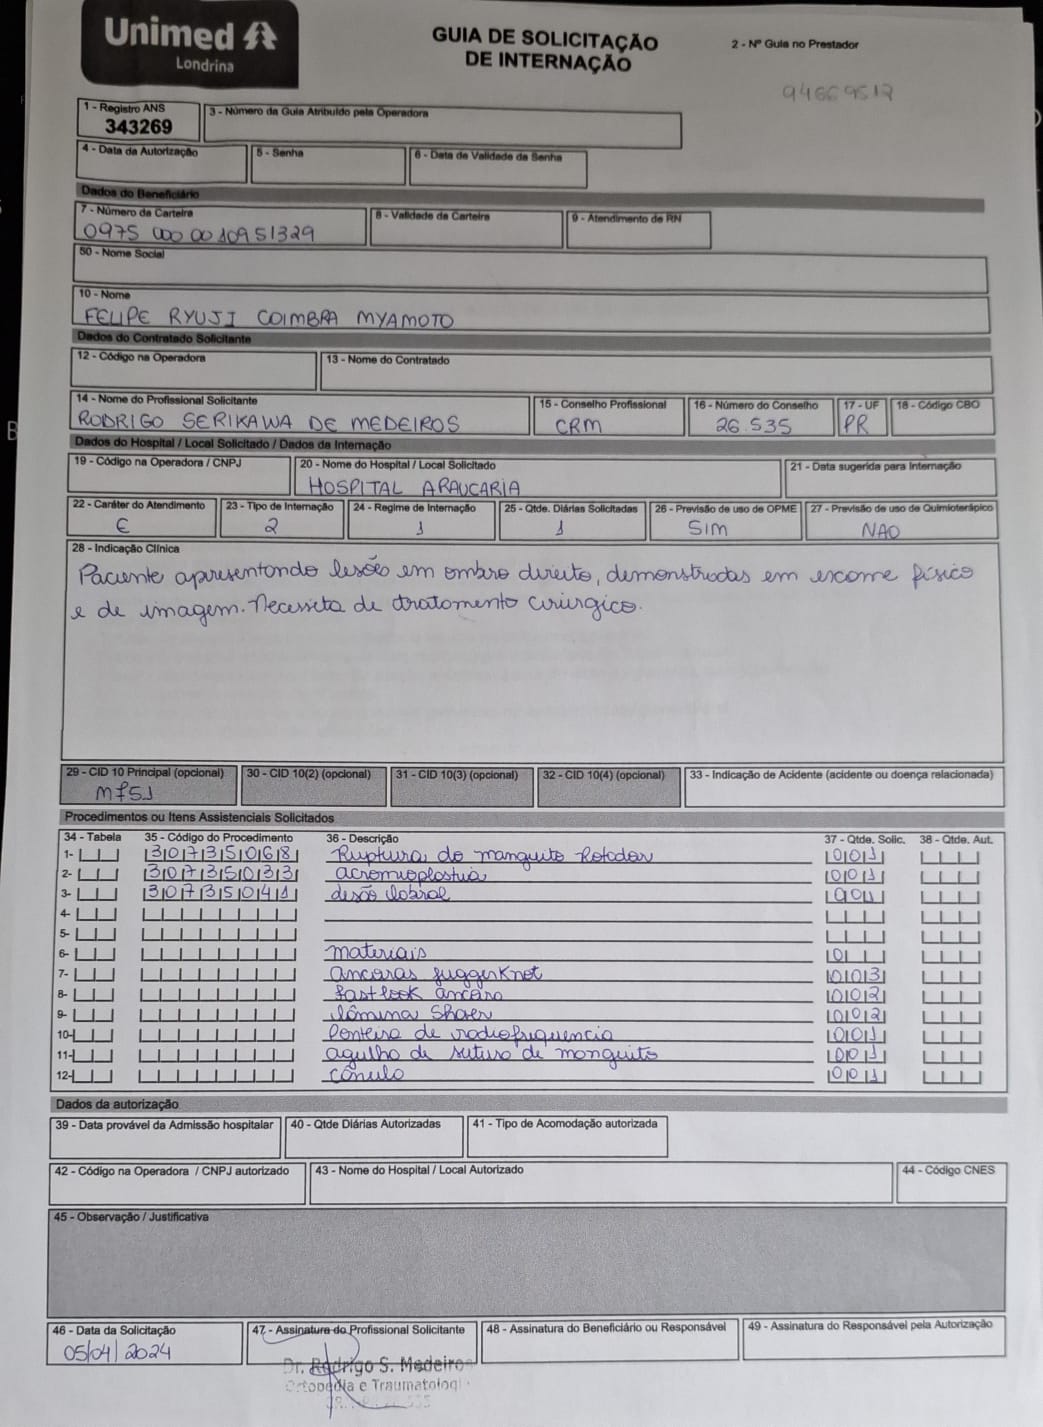 Unimed
Londrina
GUIA DE SOLICITAÇÃO
DE INTERNAÇÃO
2 - Nº Guia no Prestador
94669512
1 - Registro ANS
343269
3 - Número da Guia Atribuído pela Operadora
4 - Data da Autorização
5 - Senha
6 - Data de Validade da Senha
Dados do Beneficiário
7 - Número da Carteira
0975 000 00 10951329
8 - Validade da Carteira
9 - Atendimento de RN
50 - Nome Social
10 - Nome
FELIPE RYUJI COIMBRA MYAMOTO
Dados do Contratado Solicitante
12 - Código na Operadora
13 - Nome do Contratado
14 - Nome do Profissional Solicitante
RODRIGO SERIKAWA DE MEDEIROS
15 - Conselho Profissional
CRM
16 - Número do Conselho
26.535
17 - UF
PR
18 - Código CBO
Dados do Hospital / Local Solicitado / Dados da Internação
19 - Código na Operadora / CNPJ
20 - Nome do Hospital / Local Solicitado
HOSPITAL ARAUCARIA
21 - Data sugerida para Internação
22 - Caráter do Atendimento
E
23 - Tipo de Internação
2
24 - Regime de Internação
1
25 - Qtde. Diárias Solicitadas
1
26 - Previsão de uso de OPME
SIM
27 - Previsão de uso de Quimioterápico
NAO
28 - Indicação Clínica
Paciente apresentando lesões em ombro direito, demonstradas em exame físico
e de imagem. Necessita de tratamento cirurgico.
29 - CID 10 Principal (opcional)
M751
30 - CID 10(2) (opcional)
31 - CID 10(3) (opcional)
32 - CID 10(4) (opcional)
33 - Indicação de Acidente (acidente ou doença relacionada)
Procedimentos ou Itens Assistenciais Solicitados
34 - Tabela 35 - Código do Procedimento 36 - Descrição 37 - Qtde. Solic. 38 - Qtde. Aut.
1- 30735068 Ruptura do manguito Rotador 001
2- 30735033 acromioplastia 001
3- 30735041 lesão labral 001
4-
5-
6- materiais 0
7- ancoras juggerKnot 003
8- fastlook ancora 002
9- lâmina Shaer 002
10- Ponteira de radiofrequencia 001
11- agulha de sutura de manguito 001
12- cânula 001
Dados da autorização
39 - Data provável da Admissão hospitalar
40 - Qtde Diárias Autorizadas
41 - Tipo de Acomodação autorizada
42 - Código na Operadora / CNPJ autorizado
43 - Nome do Hospital / Local Autorizado
44 - Código CNES
45 - Observação / Justificativa
46 - Data da Solicitação
05/04/2024
47 - Assinatura do Profissional Solicitante
48 - Assinatura do Beneficiário ou Responsável
49 - Assinatura do Responsável pela Autorização
Dr. Rodrigo S. Medeiros
Ortopedia e Traumatologi